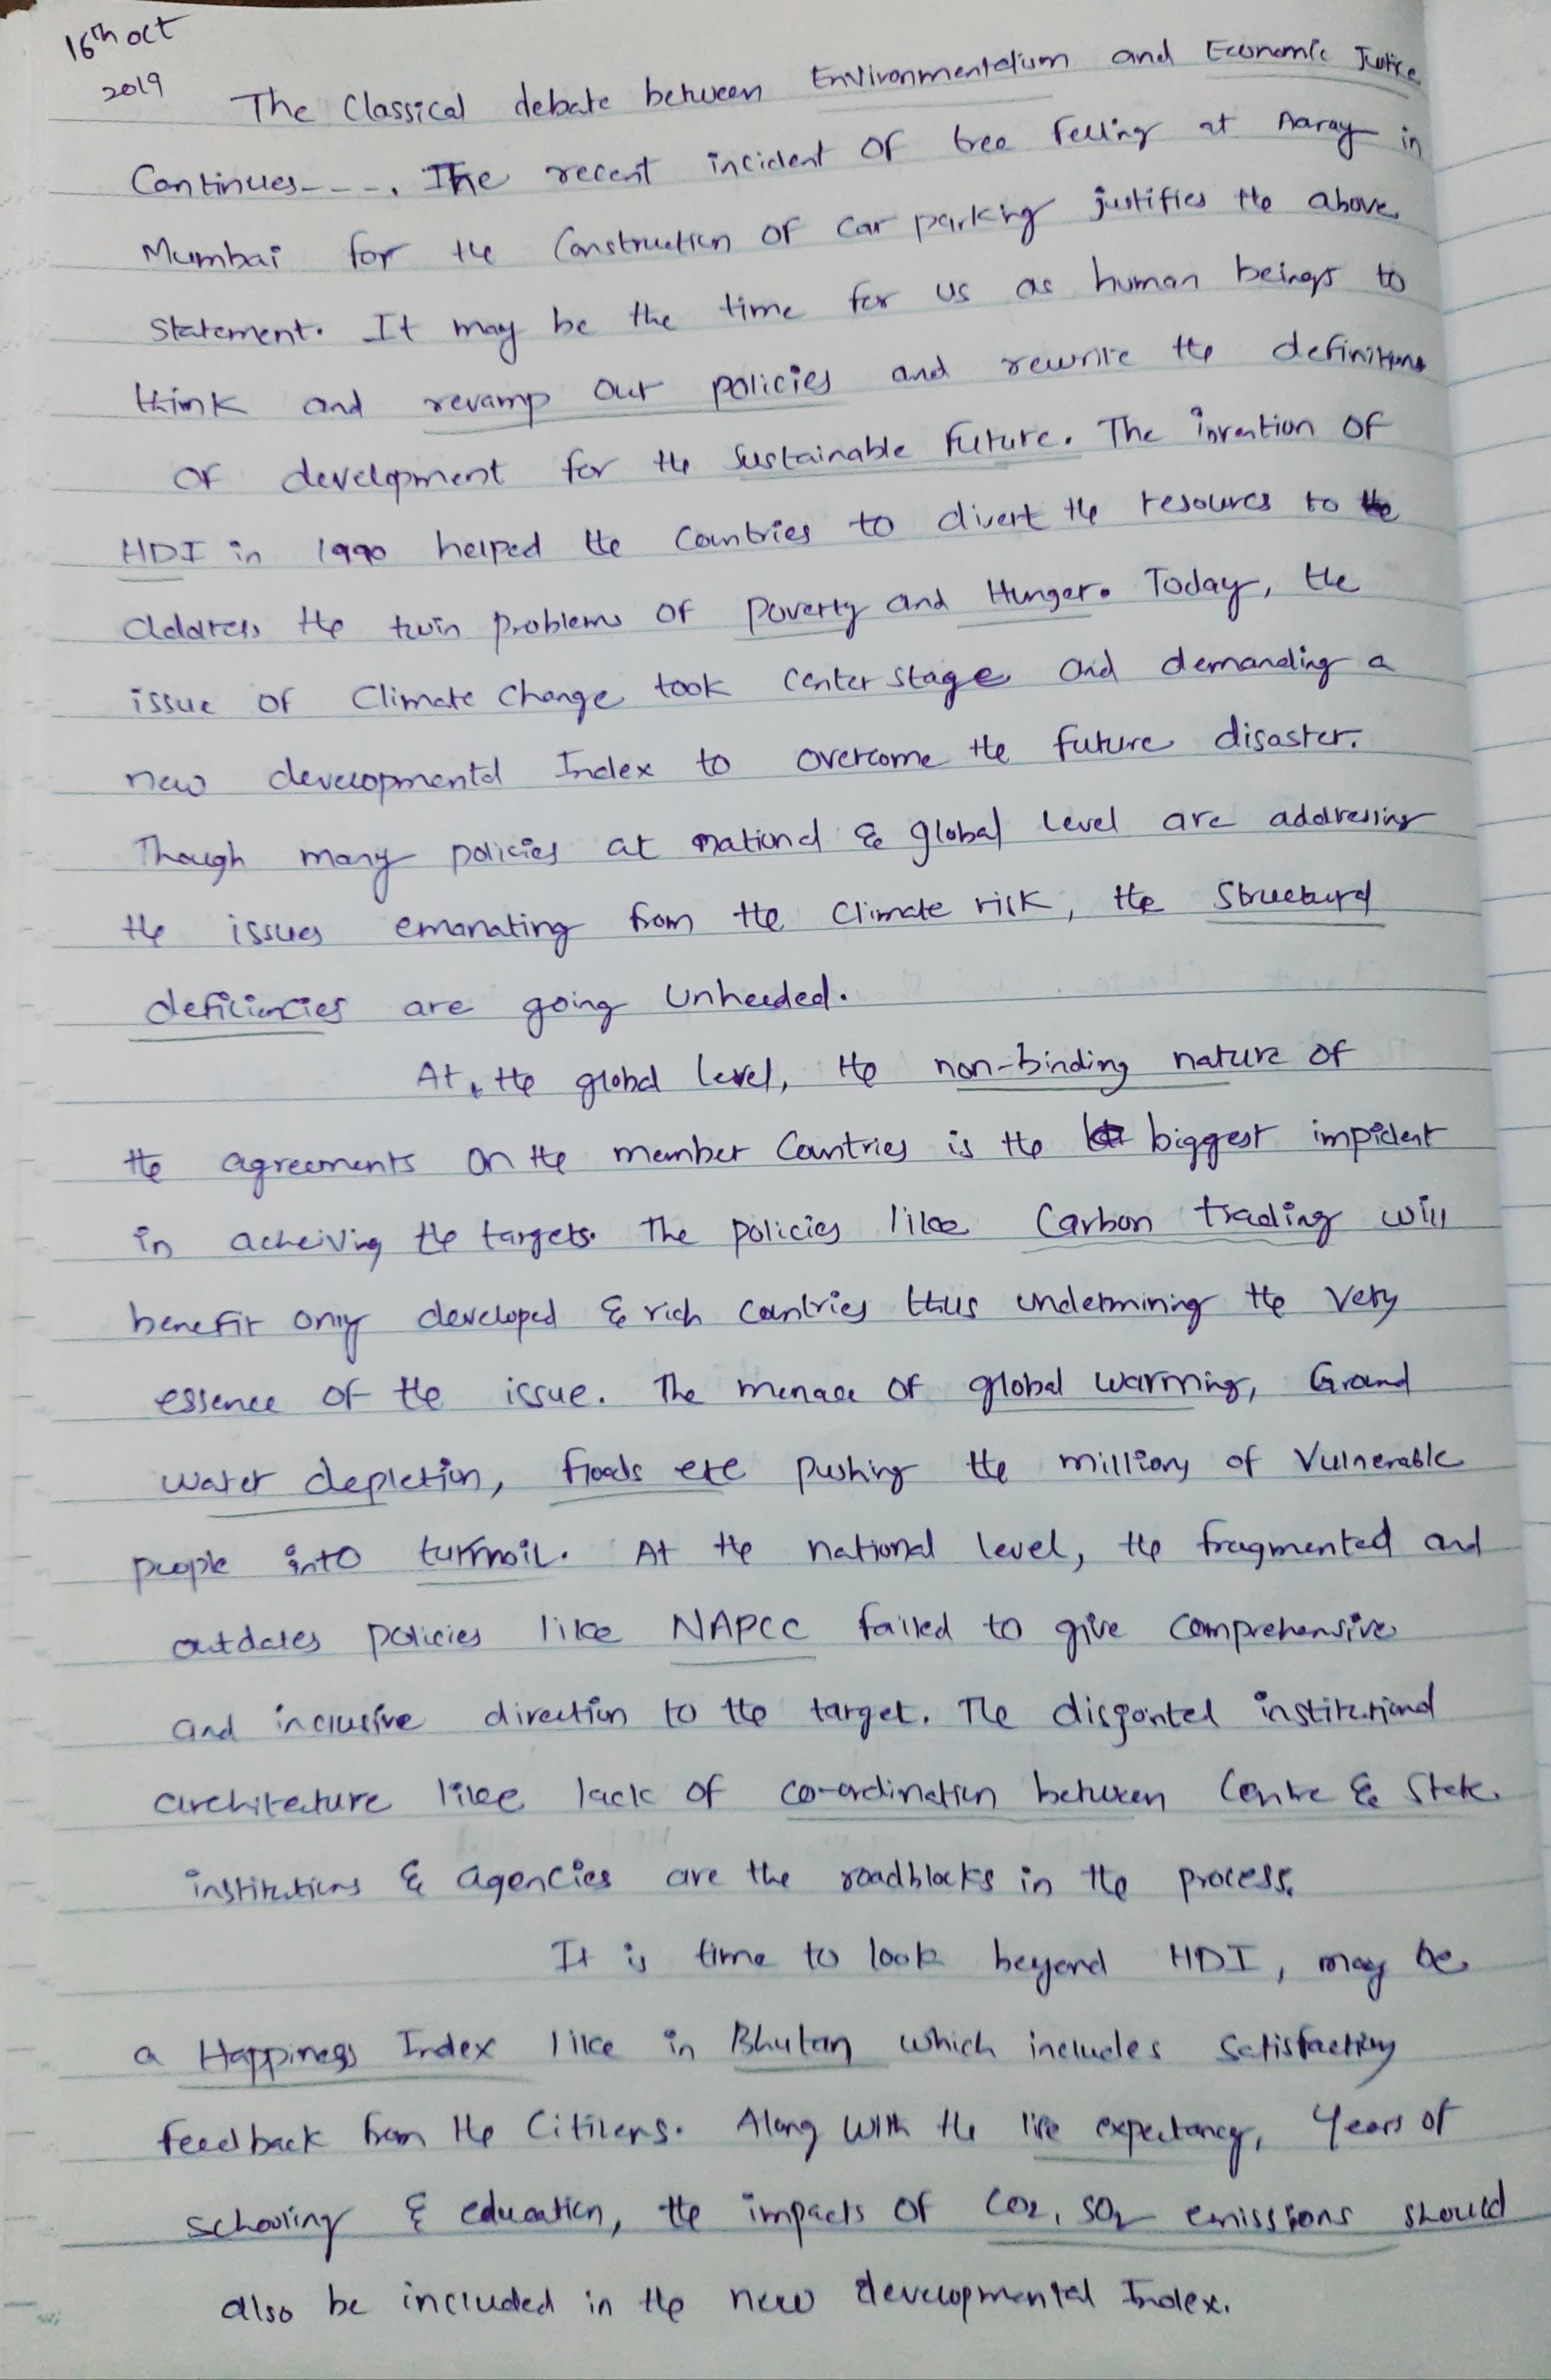 16th oct
2019
The Classical debate between Environmentalism and Economic Justice
Continues----. The recent incident of tree felling at Aaray in
Mumbai for the Construction of car parking justifies the above
statement. It may be the time for us as human beings to
think and revamp our policies and rewrite the definitions
of development for the sustainable future. The invention of
HDI in 1990 helped the Countries to divert the resources to the
address the twin problems of poverty and Hunger. Today, the
issue of Climate change took center stage and demanding a
new developmental Index to overcome the future disaster.
Though many policies at national & global level are addressing
the issues emanating from the climate risk, the structural
deficiencies are going unheeded.
At the global level, the non-binding nature of
the agreements on the member Countries is the biggest impident
in acheiving the targets. The policies like Carbon trading will
benefit only developed & rich countries thus undermining the very
essence of the issue. The menace of global warming, Ground
water depletion, floods etc pushing the millions of vulnerable
people into turmoil. At the national level, the fragmented and
outdates policies like NAPCC failed to give comprehensive
and inclusive direction to the target. The disjointed institutional
architecture like lack of co-ordination between Centre & State
institutions & agencies are the roadblocks in the process.
It is time to look beyond HDI, may be
a Happiness Index like in Bhutan which includes satisfactory
feedback from the Citizens. Along with the life expectancy, years of
schooling & education, the impacts of CO2, SO2 emissions should
also be included in the new developmental Index.